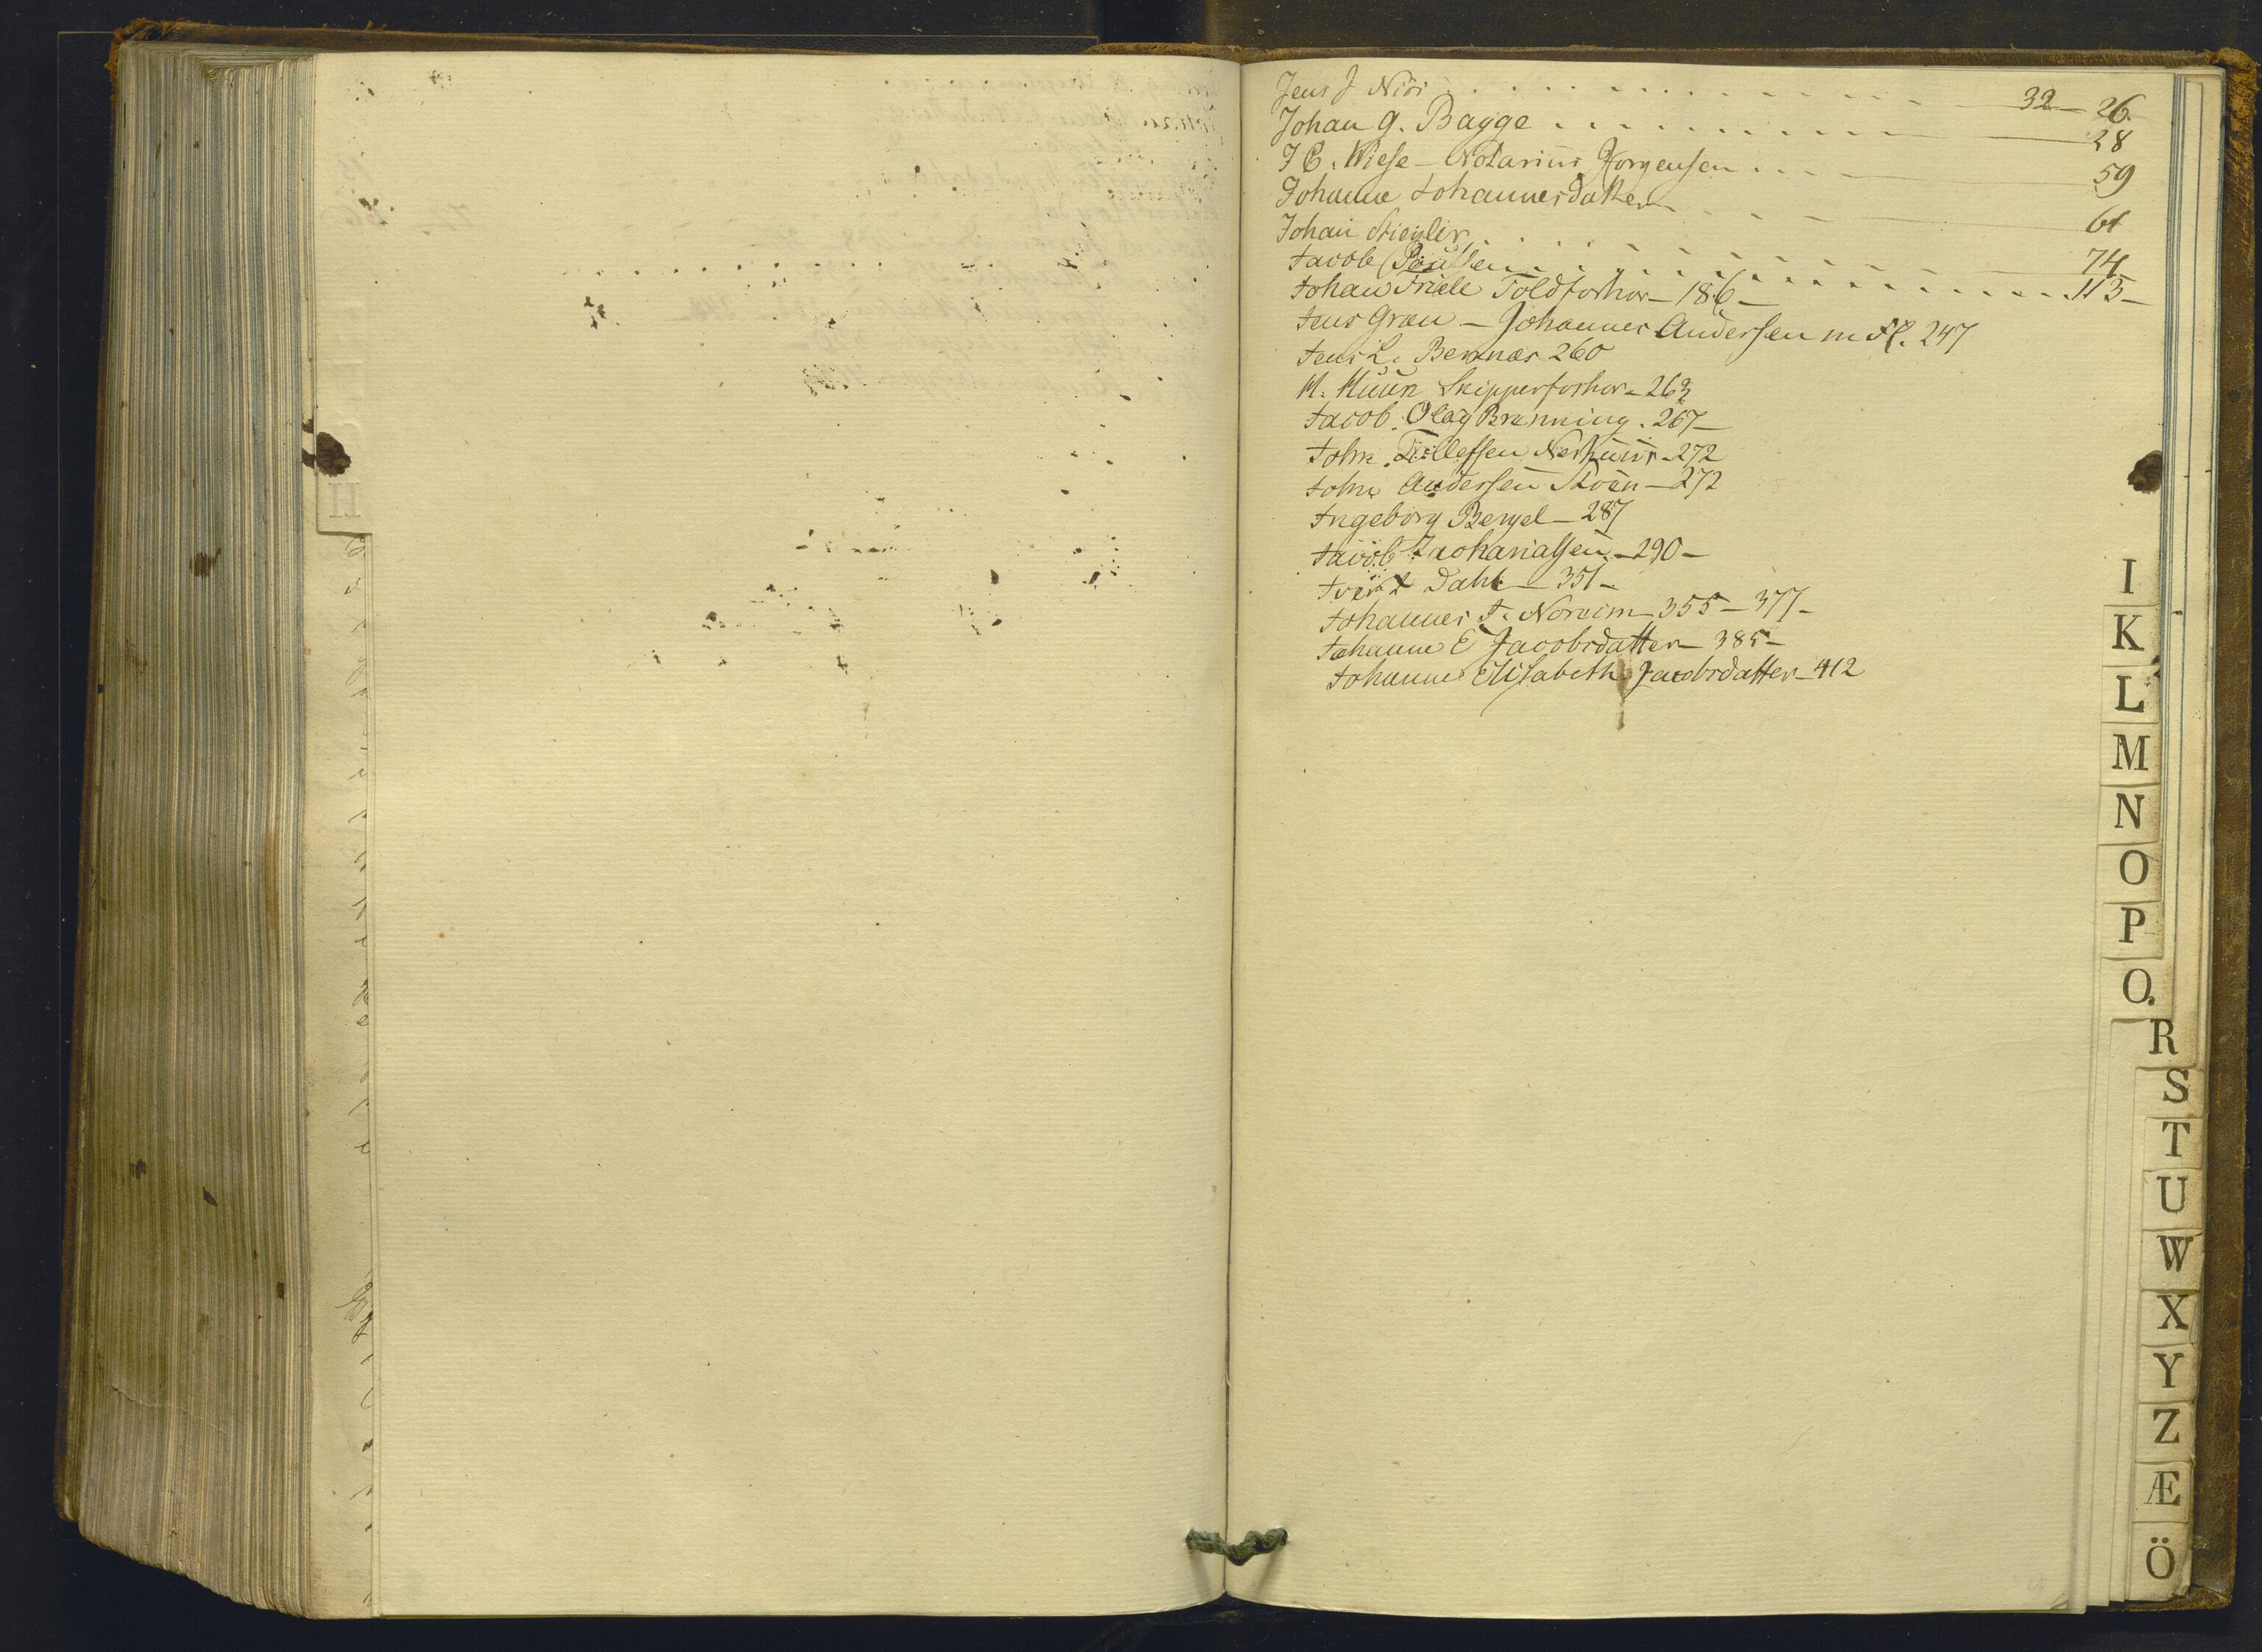 Jens J Niri . . . . . . . . . . 32 — 26.
Johan G. Bagge . . . . . . . . . . 28
J C. Wiese — Notarius Jörgensen . . . 59
Johanne Johannesdatter . . . 61
Johan . . . . . 74
Jacob Poulsen . . . . . . . . . . 115 —
Johan Friele Toldforhör — 186 —
Jens Grau — Johannes Andersen m Fl. 247
Jens L. Bennæs 260
Skipperforhör — 263
Jacob Olai Brunning . 267 —
John Tollefsen — 272
John Andersen — 272
Ingeborg Bergel — 287
Jacob Zachariassen — 290 —
Iver Dahl — 351 —
Johannes J. Noreim — 355 — 377 —
Johanne E Jacobsdatter — 385 —
Johanne Elisabeth Jacobsdatter — 412
H
I
K
L
M
N
O
P
Q
R
S
T
U
W
X
Y
Z
Æ
Ö